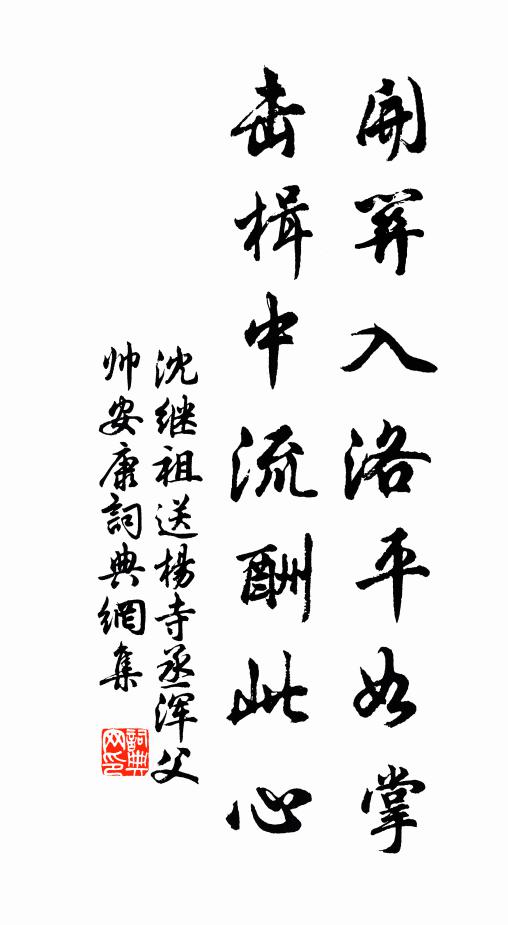 開關入洛平如掌
击楫中流酬此心
沈继祖送楊寺丞浑父
帅安康詞典網集
詞典
网印